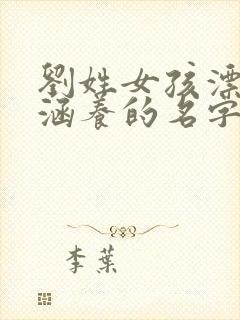 劉姓女孩漂
涵養的名字
李葉